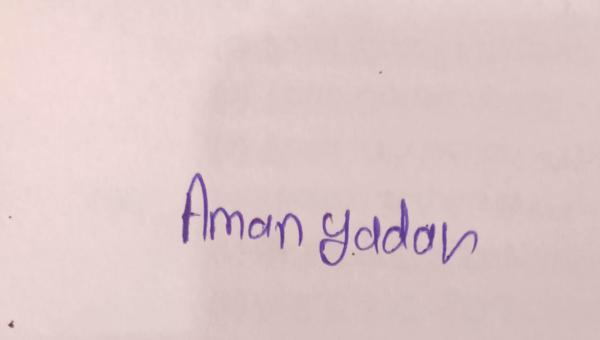 Aman yadav